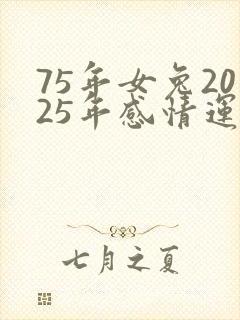 75年女兔20
25年感情运
七月之夏